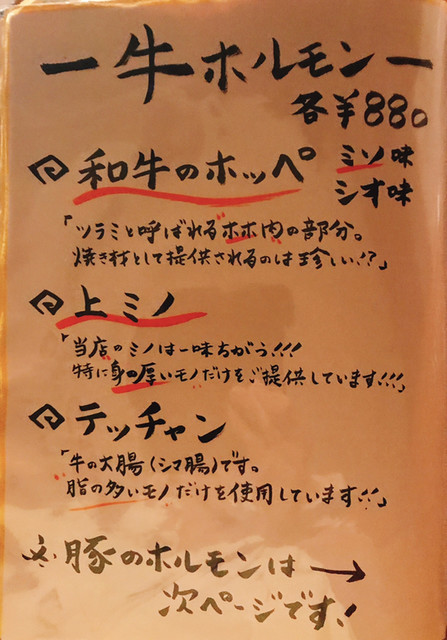 ー牛ホルモンー
各￥880
和牛のホッペ
ミソ味
シオ味
「ツラミと呼ばれるホホ肉の部分。
焼き材として提供されるのは珍しい!?」
上ミノ
「当店のミノは一味ちがう!!!
特に身の厚いモノだけをご提供しています!!!」
テッチャン
「牛の大腸(シマ腸)です。
脂の多いモノだけを使用しています!!」
※豚のホルモンは→
次ページです!